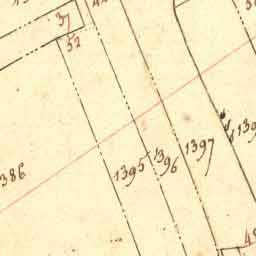 37
52
386
1395
1396
1397
139